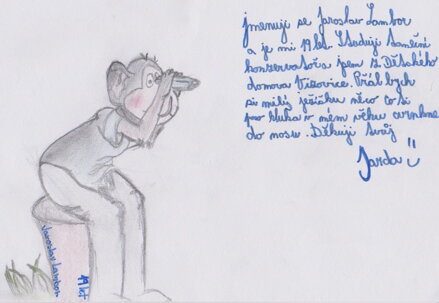 Jmenuji se Jaroslav Lambor
a je mi 19 let. Studuji Taneční
konzervatoř a jsem z Dětského
domova Vizovice. Přál bych
si milý ježíšku něco co si
pro kluka v mém věku cvrnkne
do nosu. Děkuji Tvůj
Jarda
Jaroslav Lambor
19 let